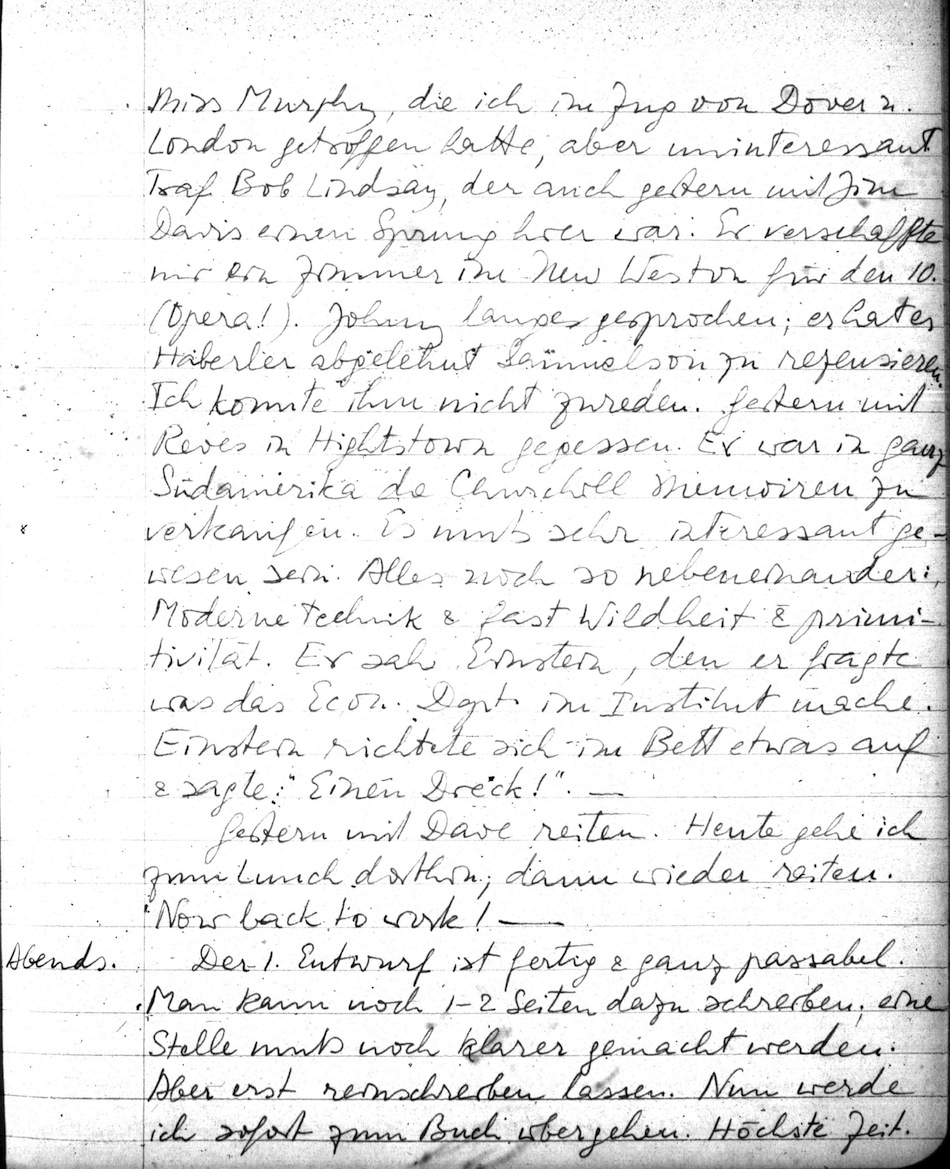 Miss Murphy, die ich im Zug von Dover n.
London getroffen hatte, aber uninteressant
Traf Bob Lindsay, der auch gestern mit Jim
Davis einen Sprung hier war. Er verschaffte
mir ein Zimmer im New Weston für den 10.
(Opera!). Johnny langes gesprochen; er hat es
Haberler abgelehnt Samuelson zu rezensieren.
Ich konnte ihm nicht zureden. Gestern mit
Reves in Hightstown gegessen. Er war in ganz
Südamerika die Churchill Memoiren zu
verkaufen. Es muß sehr interessant ge-
wesen sein. Alles noch so nebeneinander:
Moderne Technik & fast Wildheit & primi-
tivität. Er sah Einstein, den er fragte
was das Econ. Dept. im Institut mache.
Einstein richtete sich im Bett etwas auf
& sagte: "Einen Dreck!". —
Gestern mit Dave reiten. Heute gehe ich
zum Lunch dorthin; dann wieder reiten.
Now back to work! —
Abends. Der 1. Entwurf ist fertig & ganz passabel.
Man kann noch 1-2 Seiten dazu schreiben; eine
Stelle muß noch klarer gemacht werden.
Aber erst reinschreiben lassen. Nun werde
ich sofort zum Buch übergehen. Höchste Zeit.